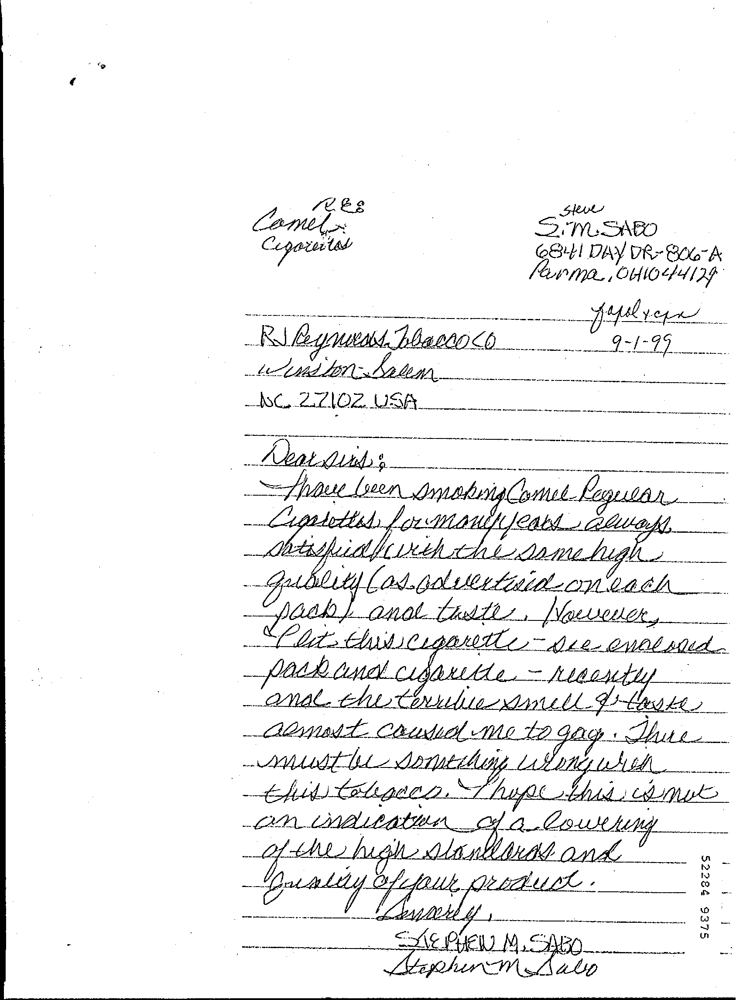 RE:
Camel
Cigarettes
Steve
S.M. SABO
6841 DAY DR-806-A
Parma, OHIO 44129
9-1-99
RJ Reynolds Tobacco CO
Winston-Salem
NC 27102 USA
Dear Sirs:
I have been smoking Camel Regular
Cigarettes for many years always
satisfied with the same high
quality (as advertised on each
pack) and taste. However,
I lit this cigarette - see enclosed
pack and cigarette - recently
and the terrible smell & taste
almost caused me to gag. There
must be something wrong with
this tobacco. I hope this is not
an indication of a lowering
of the high standards and
quality of your product.
Sincerely,
STEPHEN M. SABO
Stephen M Sabo
52284 9375